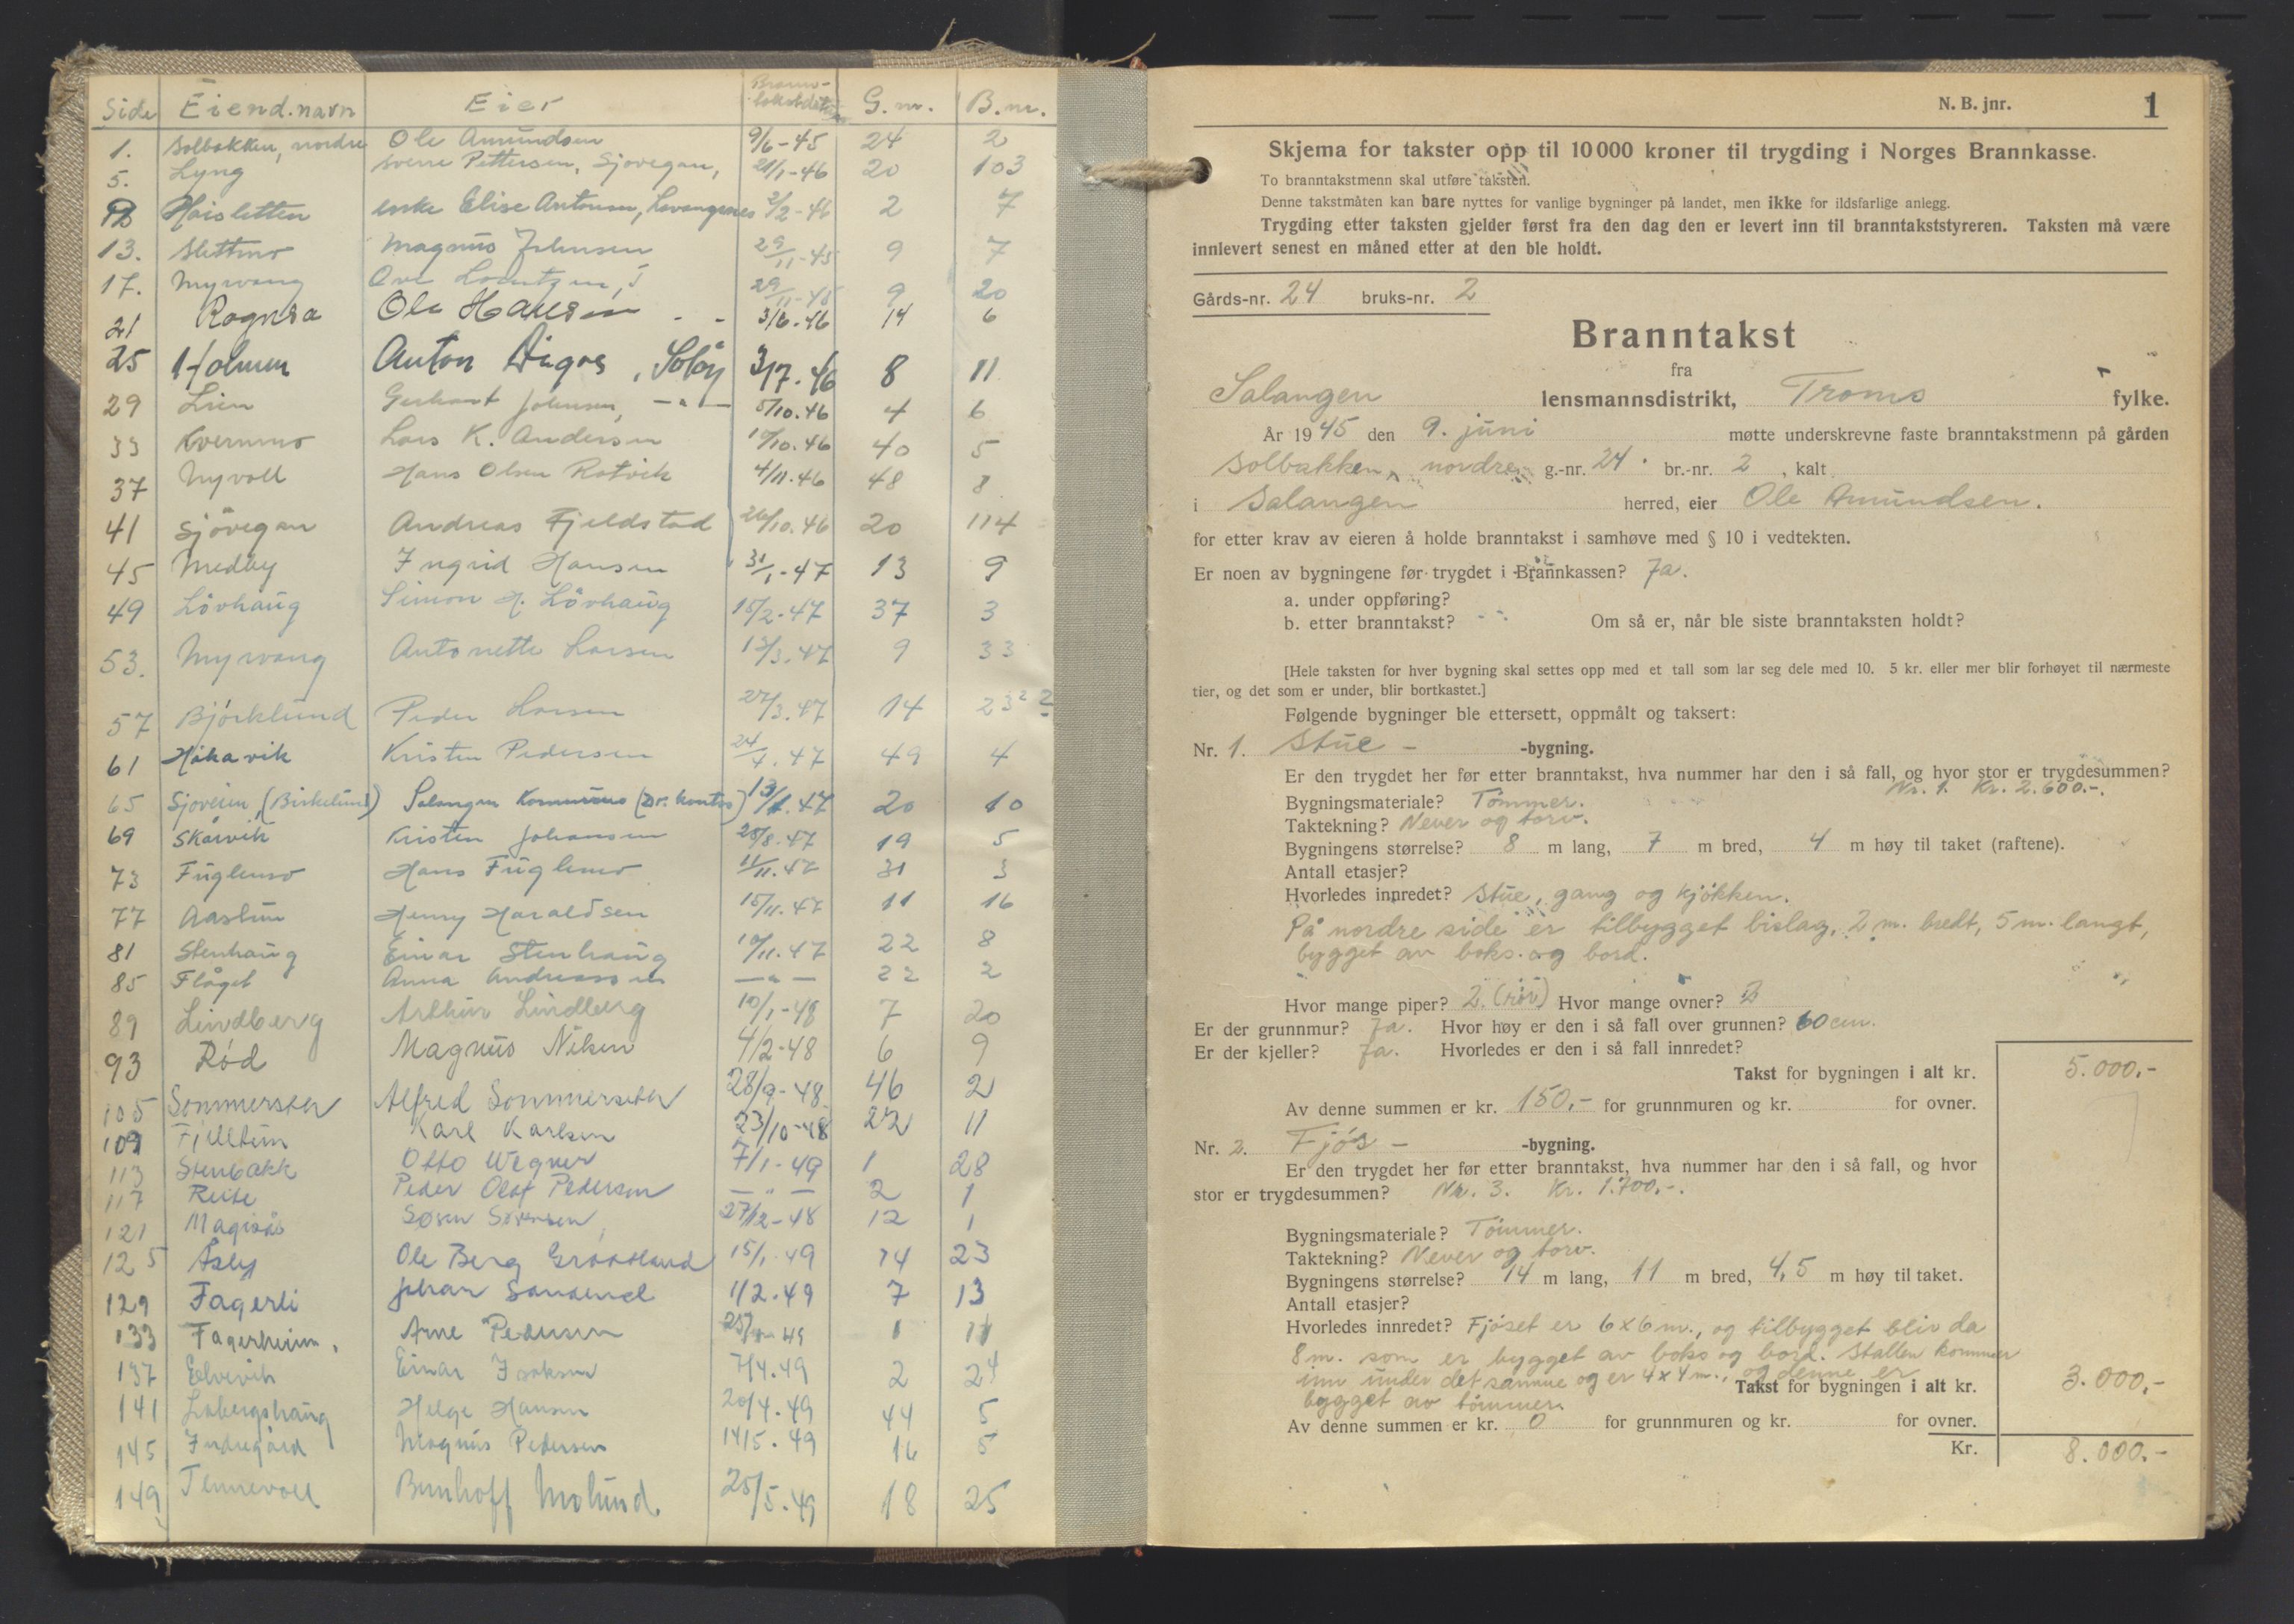 Side Eiend.navn Eier Brann- G.nr. B.nr.
1. Solbakken, nordre Ole Amundsen 9/6-45 24 2
5. Lyng Sverre Pettersen, Sjøvegan, 21/1-46 20 103
Høisletten enke Elise Antonsen, Løvangernes 2/2-46 2 7
13. Slettmo Magnus Johnsen 29/11-45 9 7
17. Myrvang Ove Lorentzen, 29/11-45 9 20
21 Rognsa Ole Hansen - - 3/6.46 14 6
25 Holmen Anton , Soløy 3/7.46 8 11
29 Lien Gerhart Johnsen, -"- 5/10.46 4 6
33 Kvernmo Lars K. Andersen 10/10.46 40 5
37 Nyvoll Hans Olsen Rotvik 4/11.46 48 8
41 Sjøvegan Andreas Fjeldstad 26/10.46 20 114
45 Medby Ingrid Hansen 31/1-47 13 9
49 Løvhaug Simon H. Løvhaug 15/2.47 37 3
53. Myrvang Antonette Larsen 13/3.47 9 33
57 Bjørklund Peder Larsen 27/3.47 14 23
61 Håkavik Kristen Pedersen 24/7.47 49 4
65 Sjøveien, (Birkelund) Salangen Kommune (Dr. kontor) 20 10
69 Skårvik Kristen Johansen 28/8.47 19 5
73 Fuglemo Hans Fuglemo 11/11.47 31 3
77 Aaslun Henry Haraldsen 15/11.47 11 16
81 Stenhaug Einar Stenhaug 10/11.47 22 8
85 Flåget Anna Andreassen -"- 22 2
89 Lindberg Arthur Lindberg 10/1-48 7 20
93 Rød Magnus Nilsen 4/2-48 6 9
105 Sommerseter Alfred Sommerseter 28/9-48 46 2
109 Fjelltun Karl Karlsen 23/10-48 22 11
113 Stenbakk Otto Wegner 7/1-49 1 28
117 Reite Peder Olaf Pedersen -"- 2 1
121 Søren Sørensen 27/12-48 12 1
125 Åsly Ole Berg 15/1.49 14 23
129 Fagerli Johan 1/2.49 7 13
133 Fagerheim. Arne Pedersen 1 11
137 Elvevik Einar Isaksen 7/4.49 2 24
141 Helge Hansen 20/4.49 44 5
145 Indregård Magnus Pedersen 14/5.49 16 5
149 Tennevoll Bernhoff Molund. 25/5.49 18 25
N. B. jnr. 1
Skjema for takster opp til 10000 kroner til trygding i Norges Brannkasse.
To branntakstmenn skal utføre taksten.
Denne takstmåten kan bare nyttes for vanlige bygninger på landet, men ikke for ildsfarlige anlegg.
Trygding etter taksten gjelder først fra den dag den er levert inn til branntakststyreren. Taksten må være
innlevert senest en måned etter at den ble holdt.
Gårds-nr. 24 bruks-nr. 2
Branntakst
fra
Salangen lensmannsdistrikt, Troms fylke.
År 1945 den 9. juni møtte underskrevne faste branntakstmenn på gården
Solbakken, nordre g.-nr. 24. br.-nr. 2, kalt
i Salangen herred, eier Ole Amundsen.
for etter krav av eieren å holde branntakst i samhøve med § 10 i vedtekten.
Er noen av bygningene før trygdet i Brannkassen? Ja.
a. under oppføring?
b. etter branntakst? Om så er, når ble siste branntaksten holdt?
[Hele taksten for hver bygning skal settes opp med et tall som lar seg dele med 10. 5 kr. eller mer blir forhøyet til nærmeste
tier, og det som er under, blir bortkastet.]
Følgende bygninger ble ettersett, oppmålt og taksert:
Nr. 1. Stue - -bygning.
Er den trygdet her før etter branntakst, hva nummer har den i så fall, og hvor stor er trygdesummen?
Nr. 1. Kr. 2.600.-.
Bygningsmateriale? Tømmer.
Taktekning? Never og torv.
Bygningens størrelse? 8 m lang, 7 m bred, 4 m høy til taket (raftene).
Antall etasjer?
Hvorledes innredet? Stue, gang og kjøkken.
På nordre side er tilbygget bislag, 2 m. bredt, 5 m. langt,
bygget av boks. og bord.
Hvor mange piper? 2. (rør) Hvor mange ovner? 2
Er der grunnmur? Ja. Hvor høy er den i så fall over grunnen? 60 cm.
Er der kjeller? Ja. Hvorledes er den i så fall innredet?
Takst for bygningen i alt kr. 5.000.-
Av denne summen er kr. 150,- for grunnmuren og kr. for ovner.
Nr. 2. Fjøs - -bygning.
Er den trygdet her før etter branntakst, hva nummer har den i så fall, og hvor
stor er trygdesummen? Nr. 3. Kr. 1.700.-.
Bygningsmateriale? Tømmer.
Taktekning? Never og torv.
Bygningens størrelse? 14 m lang, 11 m bred, 4,5 m høy til taket.
Antall etasjer?
Hvorledes innredet? Fjøset er 6x6 m., og tilbygget blir da
8 m. som er bygget av boks og bord. Stallen kommer
inn under det samme og er 4x4 m., og denne er
Takst for bygningen i alt kr. 3.000,-
bygget av tømmer.
Av denne summen er kr. 0 for grunnmuren og kr. for ovner.
Kr. 8.000.-